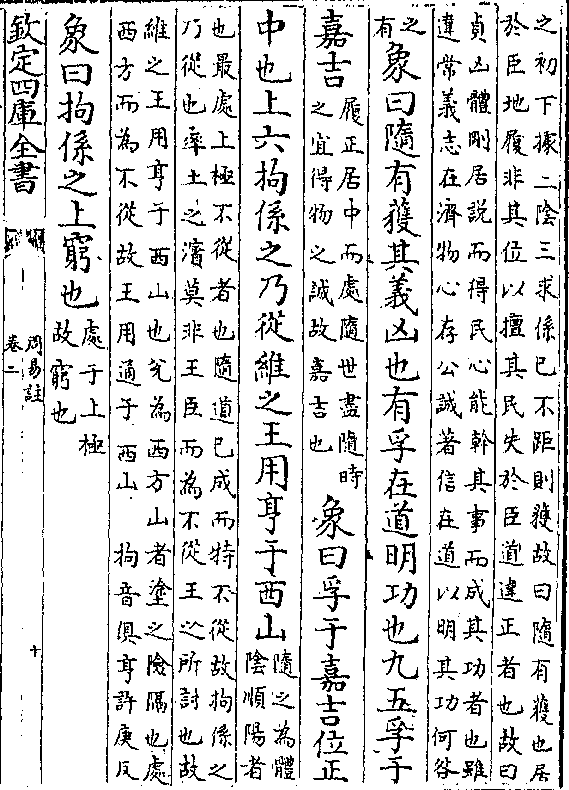 之初下據二陰三求係已不距則獲故曰隨有獲也居
於臣地履非其位以擅其民失於臣道違正者也故曰
貞凶體剛居說而得民心能幹其事而成其功者也雖
違常義志在濟物心存公誠著信在道以明其功何咎
之有
象曰隨有獲其義凶也有孚在道明功也九五孚于
嘉吉
履正居中而處隨世盡隨時
之宜得物之誠故嘉吉也
象曰孚于嘉吉位正
中也上六拘係之乃從維之王用亨于西山
隨之為體
陰順陽者
也最處上極不從者也隨道已成而特不從故拘係之
乃從也率土之濱莫非王臣而為不從王之所討也故
維之王用亨于西山也兊為西方山者塗之險隔也處
西方而為不從故王用通于西山
拘音俱亨許庚反
象曰拘係之上窮也
處于上極
故窮也
欽定四庫全書
周易註
卷二
十